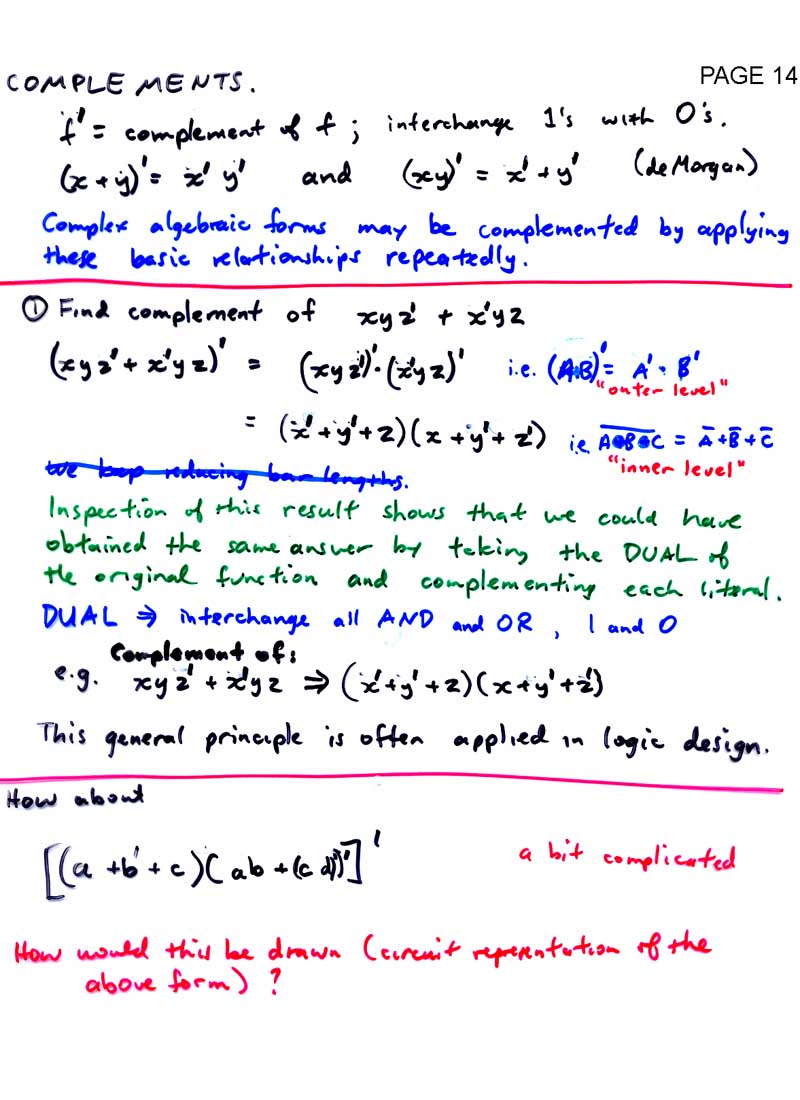 PAGE 14
COMPLEMENTS.
f' = complement of f ; interchange 1's with 0's.
(x + y)' = x' y' and (xy)' = x' + y' (de Morgan)
Complex algebraic forms may be complemented by applying
these basic relationships repeatedly.
① Find complement of xyz' + x'yz
(xyz' + x'yz)' = (xyz')'·(x'yz)' i.e. (A+B)' = A' · B'
"outer level"
= (x' + y' + z)(x + y' + z') i.e. A•B•C = A̅ + B̅ + C̅
"inner level"
We keep reducing bar lengths.
Inspection of this result shows that we could have
obtained the same answer by taking the DUAL of
the original function and complementing each literal.
DUAL ⇒ interchange all AND and OR, 1 and 0
Complement of:
e.g. xyz' + x'yz ⇒ (x' + y' + z)(x + y' + z')
This general principle is often applied in logic design.
How about
[(a + b' + c)(ab + (cd)')']' a bit complicated
How would this be drawn (circuit representation of the
above form) ?